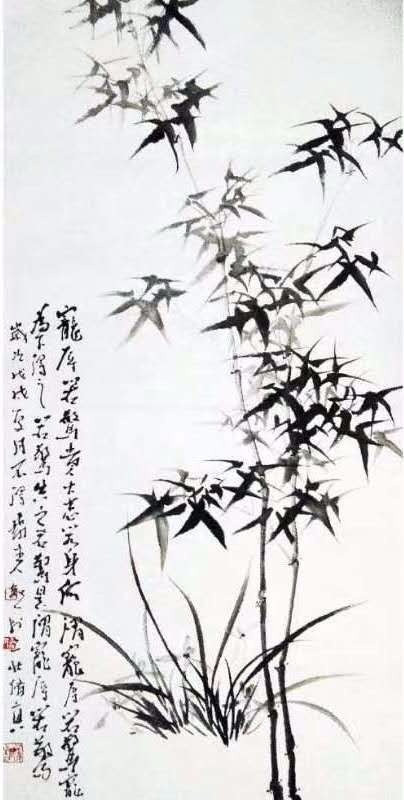 寵辱若驚貴大患若身何謂寵辱若驚寵
為下得之若驚失之若驚是謂寵辱若驚
歲次戊戌